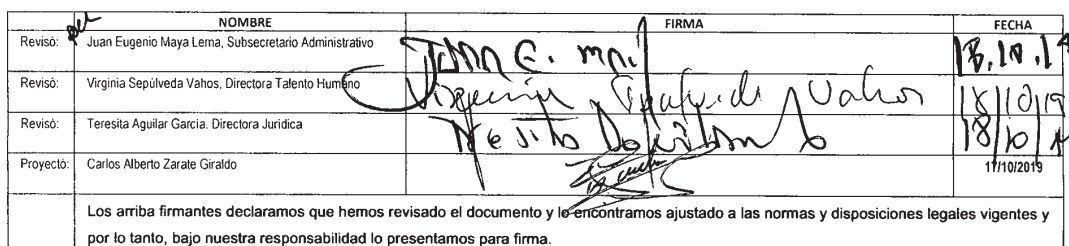 NOMBRE FIRMA FECHA
Revisó: Juan Eugenio Maya Lema, Subsecretario Administrativo Juan E. 18.10.19
Revisó: Virginia Sepúlveda Vahos, Directora Talento Humano Virginia Sepulveda Vahos 18/10/19
Revisó: Teresita Aguilar Garcia. Directora Jurídica 18/10/
Proyectó: Carlos Alberto Zarate Giraldo 17/10/2019
Los arriba firmantes declaramos que hemos revisado el documento y lo encontramos ajustado a las normas y disposiciones legales vigentes y
por lo tanto, bajo nuestra responsabilidad lo presentamos para firma.